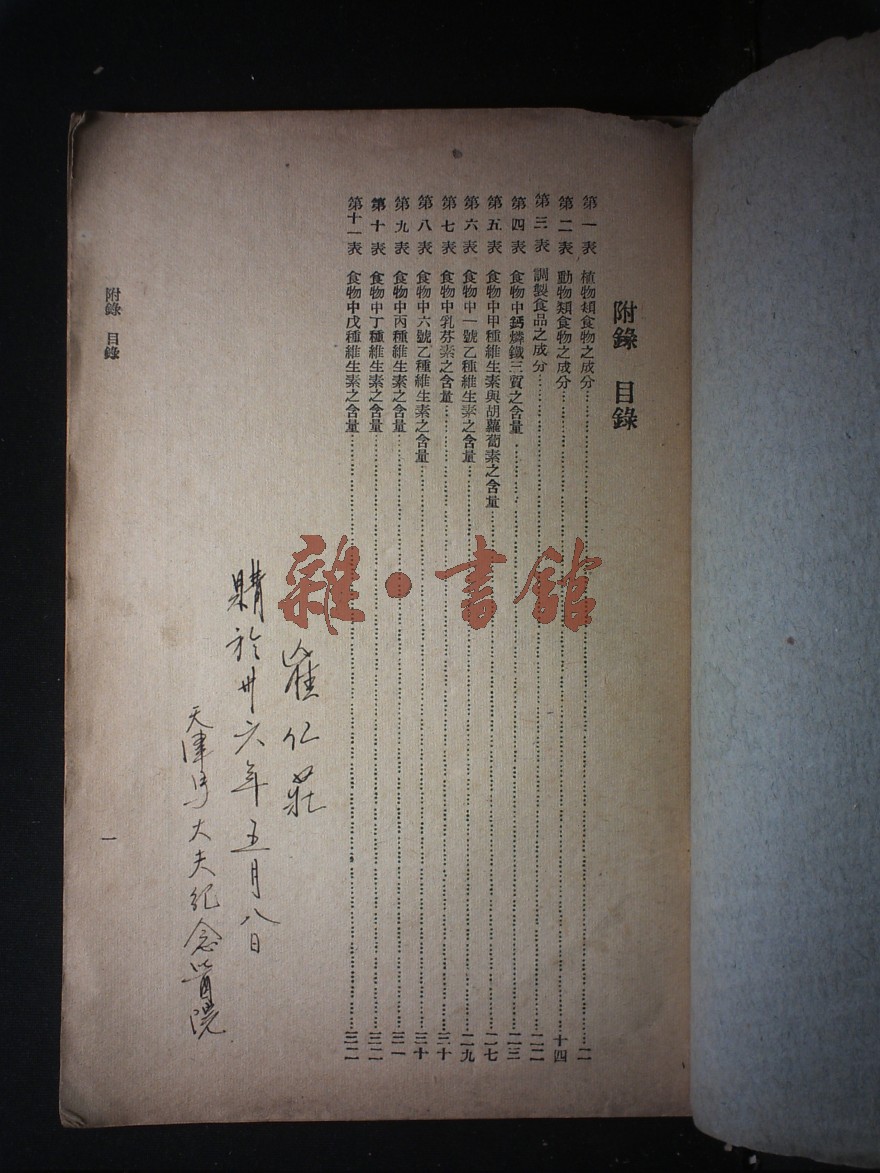 附錄　目錄
第一表　植物類食物之成分……二
第二表　動物類食物之成分……十四
第三表　調製食品之成分……二二
第四表　食物中鈣燐鐵三質之含量……二三
第五表　食物中甲種維生素與胡蘿蔔素之含量……二七
第六表　食物中一號乙種維生素之含量……二九
第七表　食物中乳芬素之含量……三十
第八表　食物中六號乙種維生素之含量……三十
第九表　食物中丙種維生素之含量……三一
第十表　食物中丁種維生素之含量……三二
第十一表　食物中戊種維生素之含量……三二
崔仁莊
購於卅六年五月八日
天津馬大夫紀念醫院
附錄　目錄
一
雜·書館